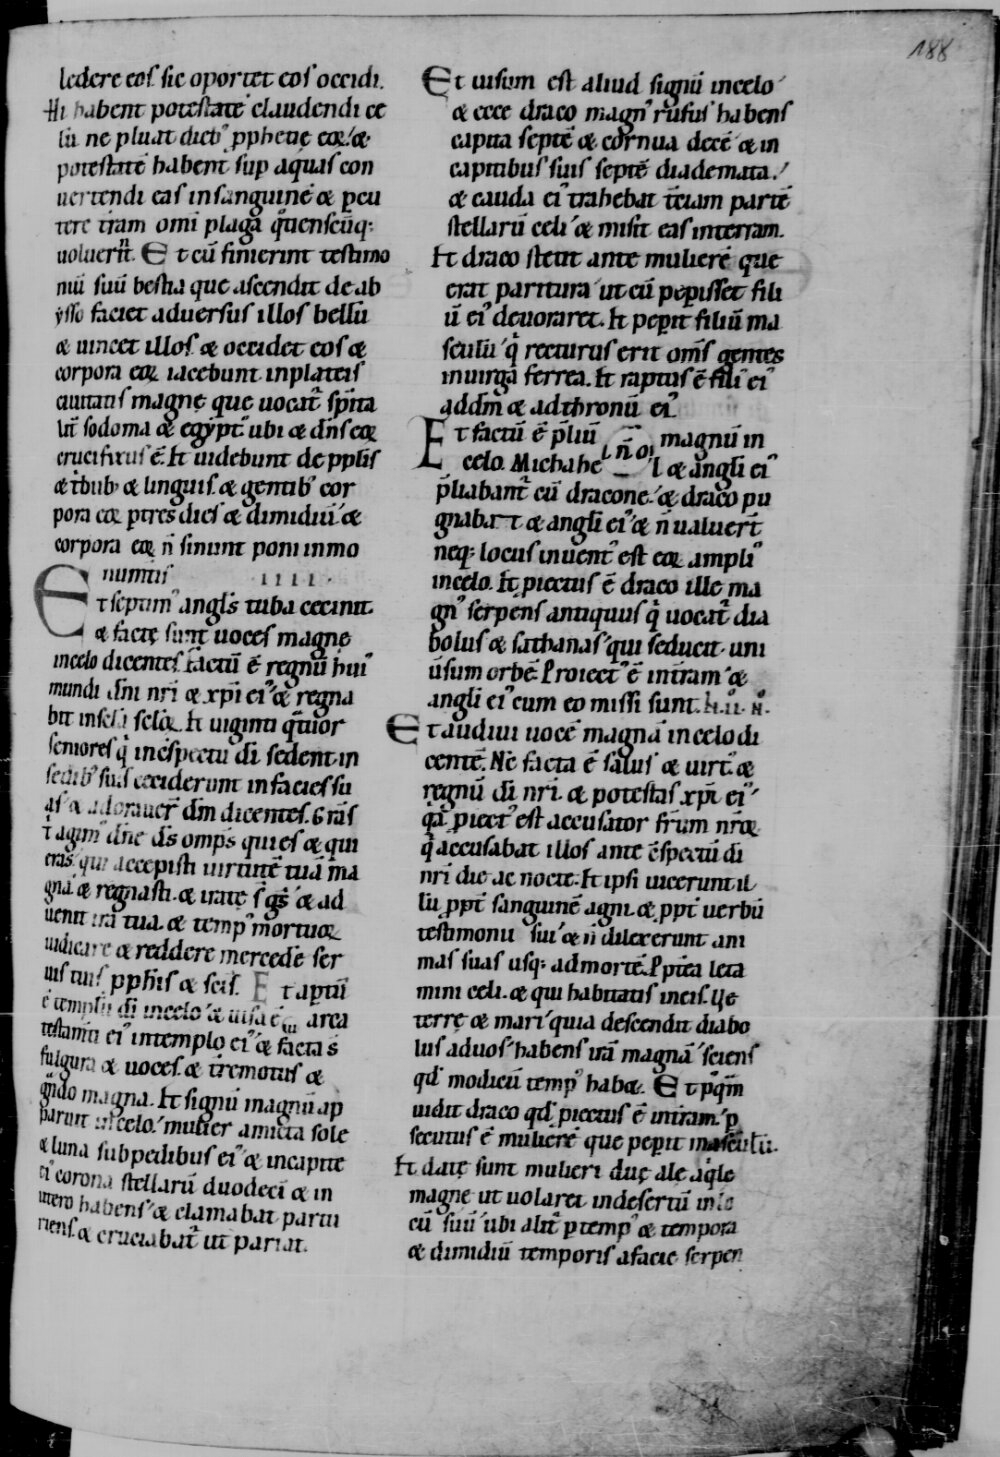 188
ledere eos. sic oportet eos occidi.
Hi habent potestatē claudendi ce
lū ne pluat diebꝰ ꝓphetię eoꝝ. ⁊
potestatē habent sup̄ aquas con
uertendi eas in sanguinē ⁊ pcu
tere t̄ram omi plaga q̄tienscūq;
uoluer̄it. Et cū finierint testimo
niū suū bestia que ascendit de ab
ysso faciet aduersus illos bellū
⁊ uincet illos. ⁊ occidet eos ⁊
corpora eoꝝ iacebunt in plateis
ciuitatis magnę que uocat̄ sp̄ita
lit̄ sodoma ⁊ egyptꝰ ubi ⁊ dn̄s eoꝝ
crucifixus ē. Et uidebunt de pplis
⁊ t̄bubꝰ ⁊ linguis. ⁊ gentibꝰ cor
pora eoꝝ p̱ tres dies ⁊ dimidiū. ⁊
corpora eoꝝ n̄ sinunt poni in mo
numtis IIII.
Et septimꝰ angls̄ tuba cecinit.
⁊ factę sunt uoces magnę
in celo dicentes. Factū ē regnū huiꝰ
mundi dn̄i nr̄i ⁊ xp̄i eiꝰ ⁊ regna
bit in scl̄a scloꝝ. Et uiginti q̄tuor
seniores q̄ in c̄spectu dī sedent in
sedibꝰ suis ceciderunt in facies su
as. ⁊ adorauer̄ dm̄ dicentes. Gr̄as
t̄ agimꝰ dn̄e ds̄ omp̄s qui es ⁊ qui
eras. qui accepisti uirtutē tuā ma
gnā. ⁊ regnasti. ⁊ iratę s̄ gs̄. ⁊ ad
uenit ira tua. ⁊ tempꝰ mortuoꝝ
iudicare ⁊ reddere mercedē ser
uis tuis ꝓphis ⁊ scis. Et aptū
ē templū dī in celo. ⁊ uisa ē arca
testam̄ti eiꝰ in templo eiꝰ. ⁊ facta s̄
fulgura ⁊ uoces. ⁊ t̄remotus ⁊
g̊ndo magna. Et signū magnū ap
paruit in celo. mulier amicta sole
⁊ luna sub pedibus eiꝰ ⁊ in capite
eiꝰ corona stellarū duodecī ⁊ in
utero habens. ⁊ clamabat partu
riens. ⁊ cruciabat̄ ut pariat.
Et uisum est aliud signū in celo.
⁊ ecce draco magnꝰ rufus habens
capita septē ⁊ cornua decē ⁊ in
capitibus suis septē diademata.
⁊ cauda eiꝰ trahebat t̄ciam partē
stellarū celi. ⁊ misit eas in terram.
Et draco stetit ante mulierē que
erat paritura ut cū pep̱isset fili
ū eiꝰ deuoraret. Et pep̱it filiū ma
sculū q̄ recturus erit om̄s gentes
in uirga ferrea. Et raptus ē filiꝰ eiꝰ
ad dm̄ ⁊ ad thronū eiꝰ
Et factū ē p̄liū magnū in
celo. Michahel ⁊ angli eiꝰ
p̄liabant̄ cū dracone. ⁊ draco pu
gnabat ⁊ angli eiꝰ. ⁊ n̄ ualuer̄t
neq; locus inuentꝰ est eoꝝ ampliꝰ
in celo. Et p̱iectus ē draco ille ma
gnꝰ serpens antiquus q̄ uocat̄ dia
bolus ⁊ sathanas. qui seducit uni
ūsum orbē. Proiectꝰ ē in t̄ram. ⁊
angli eiꝰ cum eo missi sunt.
Et audiui uocē magnā in celo di
centē. Nc̄ facta ē salus ⁊ uirtꝰ ⁊
regnū dī nr̄i. ⁊ potestas xp̄i eiꝰ.
q̄a p̱iectꝰ est accusator fr̄um nr̄oꝝ
q̄ accusabat illos ante c̄spectū dī
nr̄i die ac nocte. Et ipsi uicerunt il
lū ꝓpt̄ sanguinē agni. ⁊ ꝓpt̄ uerbū
testimonii sui. ⁊ n̄ dilexerunt ani
mas suas usq; ad mortē. Ꝓpt̄ea leta
mini celi. ⁊ qui habitatis in eis. Ue
terrę ⁊ mari. quia descendit diabo
lus ad uos. habens irā magnā. sciens
qd̄ modicū tempꝰ habet. Et pꝰq̄m
uidit draco qd̄ p̱iectus ē in t̄ram. p̱
secutus ē mulierē que pep̱it masculū.
Et datę sunt mulieri duę alę aq̄le
magnę ut uolaret in desertū in lo
cū suū. ubi alit̄ p̱ tempꝰ ⁊ tempora
⁊ dimidiū temporis a facie serpen